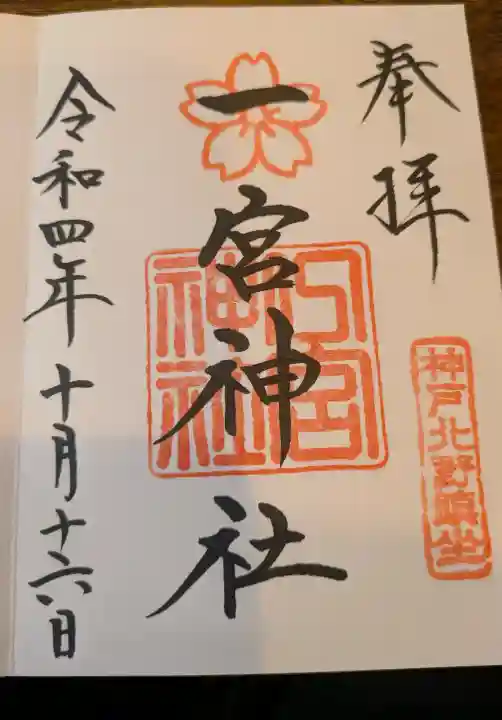 奉拝
神戸北野鎮坐
一宮神社
一宮神社
令和四年十月十六日